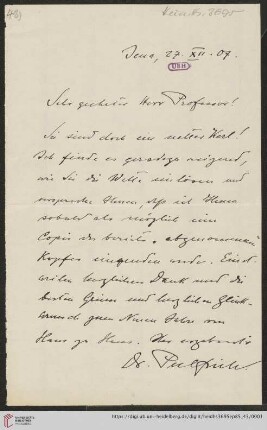 Jena, 27. XII. 09.
UBH
Sehr geehrter Herr Professor!
Sie sind doch ein netter Kerl!
Ich finde es geradezu reizend,
wie Sie die Wette einlösen und
Ihnen, dass ich Ihnen
sobald als möglich eine
Copie des bereits abgenommenen
Kopfes einsenden werde. Einst-
weilen herzlichen Dank und die
besten Grüsse und herzlichen Glück-
wunsch zum Neuen Jahre von
Haus zu Haus. Ihr ergebenster
Dr. Pulfrich
UNIVERSITÄTS-
BIBLIOTHEK
HEIDELBERG